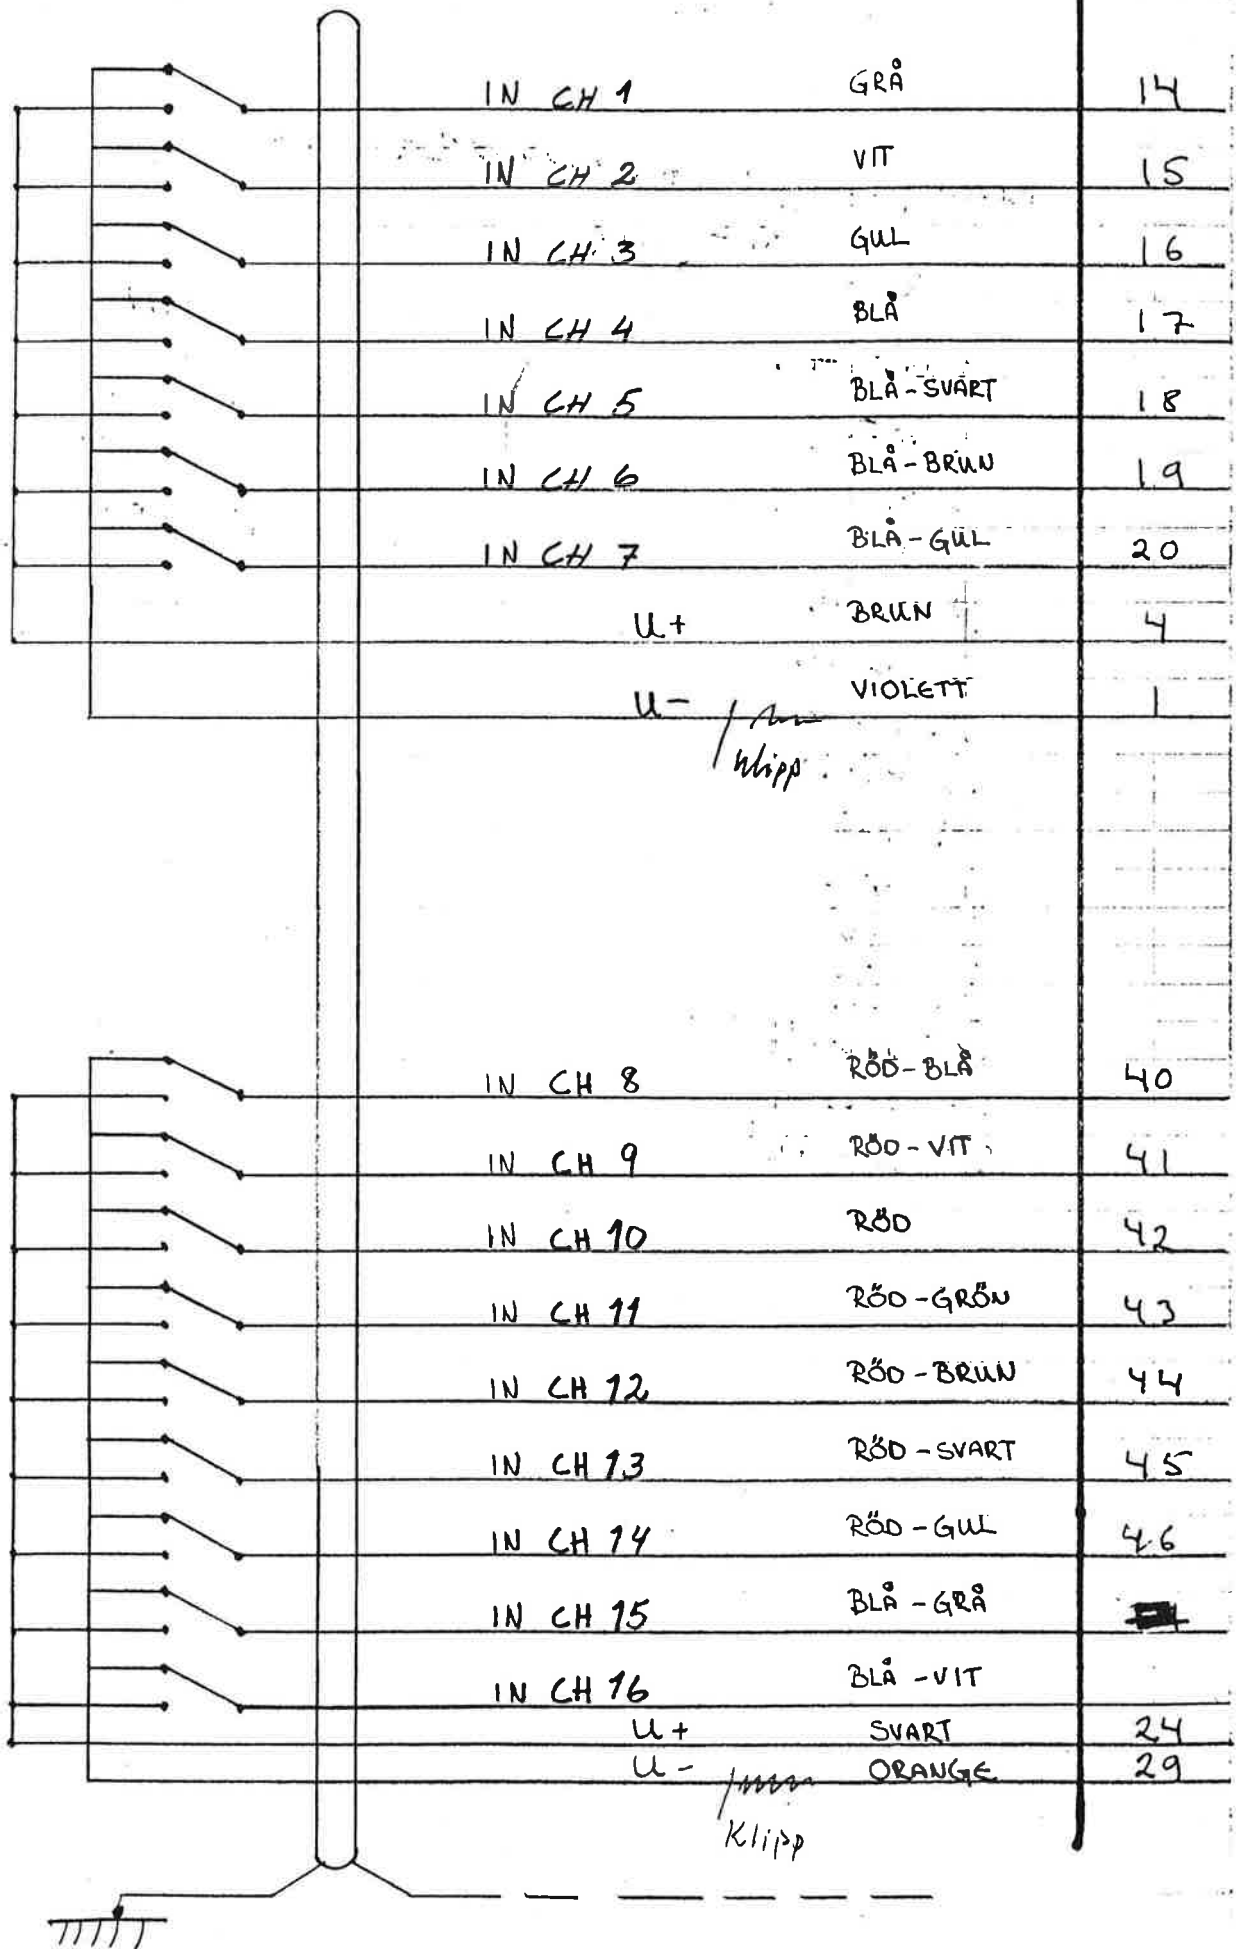 IN CH 1 GRÅ 14
IN CH 2 VIT 15
IN CH 3 GUL 16
IN CH 4 BLÅ 17
IN CH 5 BLÅ-SVART 18
IN CH 6 BLÅ-BRUN 19
IN CH 7 BLÅ-GUL 20
U+ BRUN 4
U- VIOLETT 1
Klipp
IN CH 8 RÖD-BLÅ 40
IN CH 9 RÖD-VIT 41
IN CH 10 RÖD 42
IN CH 11 RÖD-GRÖN 43
IN CH 12 RÖD-BRUN 44
IN CH 13 RÖD-SVART 45
IN CH 14 RÖD-GUL 46
IN CH 15 BLÅ-GRÅ
IN CH 16 BLÅ-VIT
U+ SVART 24
U- ORANGE 29
Klipp